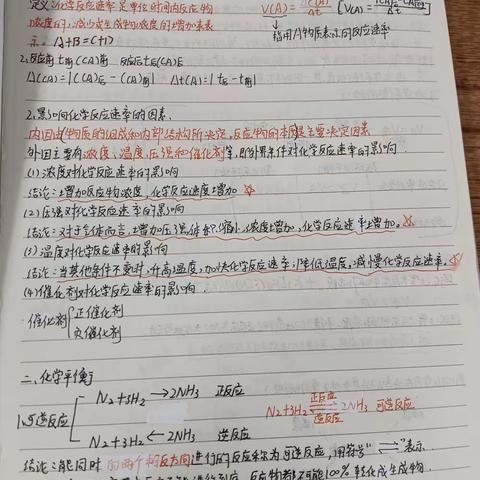 定义:化学反应速率是单位时间内反应物
浓度的减少或生成物浓度的增加来表
示. A+B=C+D
V(A)=
指用A物质表示的反应速率
2.反应前 t前 C(A)前 反应后 t后 C(A)后
ΔC(A)=|C(A)后-C(A)前| Δt(A)=|t后-t前|
2.影响化学反应速率的因素.
内因由(物质的组成和内部结构所决定,反应物的本质是主要决定因素
外因主要有浓度、温度、压强和催化剂等,即外界条件对化学反应速率的影响
(1)浓度对化学反应速率的影响
结论:增加反应物浓度,化学反应速度增加 ☆
(2)压强对化学反应速率的影响
结论:对于气体而言,增加压强,体积缩小,浓度增加,化学反应速率增加。☆
(3)温度对化学反应速率的影响
结论:当其他条件不变时,升高温度,加快化学反应速率;降低温度,减慢化学反应速率。☆
(4)催化剂对化学反应速率的影响.
催化剂{正催化剂
负催化剂
二、化学平衡
N₂+3H₂ → 2NH₃ 正反应
1.可逆反应
N₂+3H₂ ← 2NH₃ 逆反应
N₂+3H₂ 正反应⇌逆反应 2NH₃ 可逆反应
结论:能同时向两个相反方向进行的反应称为可逆反应,用符号"⇌"表示.
反应物都不可能100%转化成生成物.